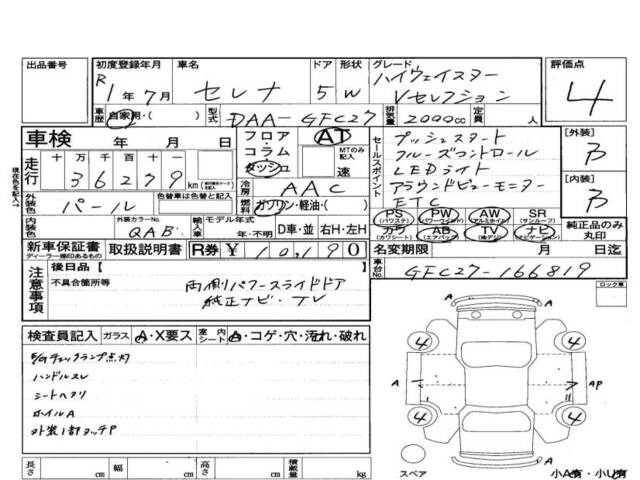 出品番号
初度登録年月
R1年7月
車名
セレナ
ドア
5
形状
W
グレード
ハイウェイスター
Vセレクション
評価点
4
車歴
自家用・( )
型式
DAA-GFC27
排気量
2000cc
定員
人
車検
年 月 日
フロア
コラム
ダッシュ
AT
MTのみ記入
速
セールスポイント
プッシュスタート
クルーズコントロール
LEDライト
アラウンドビューモニター
ETC
[外装]
B
[内装]
B
現在色を記入
走行
十万 万 千 百 十 一
36279
km
冷房
AAC
外装色
パール
色替車は色替と記入
燃料
ガソリン・軽油・( )
PS
(パワステ)
PW
(パワーウインド)
AW
(アルミホイル)
SR
(サンルーフ)
カワ
(カワシート)
AB
(エアバック)
TV
ナビ
(ナビゲーション)
純正品のみ丸印
内装色
外装カラーNo.
QAB
輸入車
モデル年式
年・不明
D車・並
右H・左H
新車保証書
ディーラー捺印あるもの
取扱説明書
R券
¥10,190
名変期限
月 日迄
車台No.
GFC27-166819
注意事項
後日品[ ]
不具合箇所等
両側パワースライドドア
純正ナビ・TV
ロック車
検査員記入
ガラス
A・X要ス
室内シート
A・コゲ・穴・汚れ・破れ
E/Gチェックランプ点灯
ハンドルスレ
シートヘタリ
ホイルA
外装1部タッチP
A
4
4
A
AP
4
4
A
スペア
小A有・小U有
長さ
cm
幅
cm
高さ
cm
積載量
kg